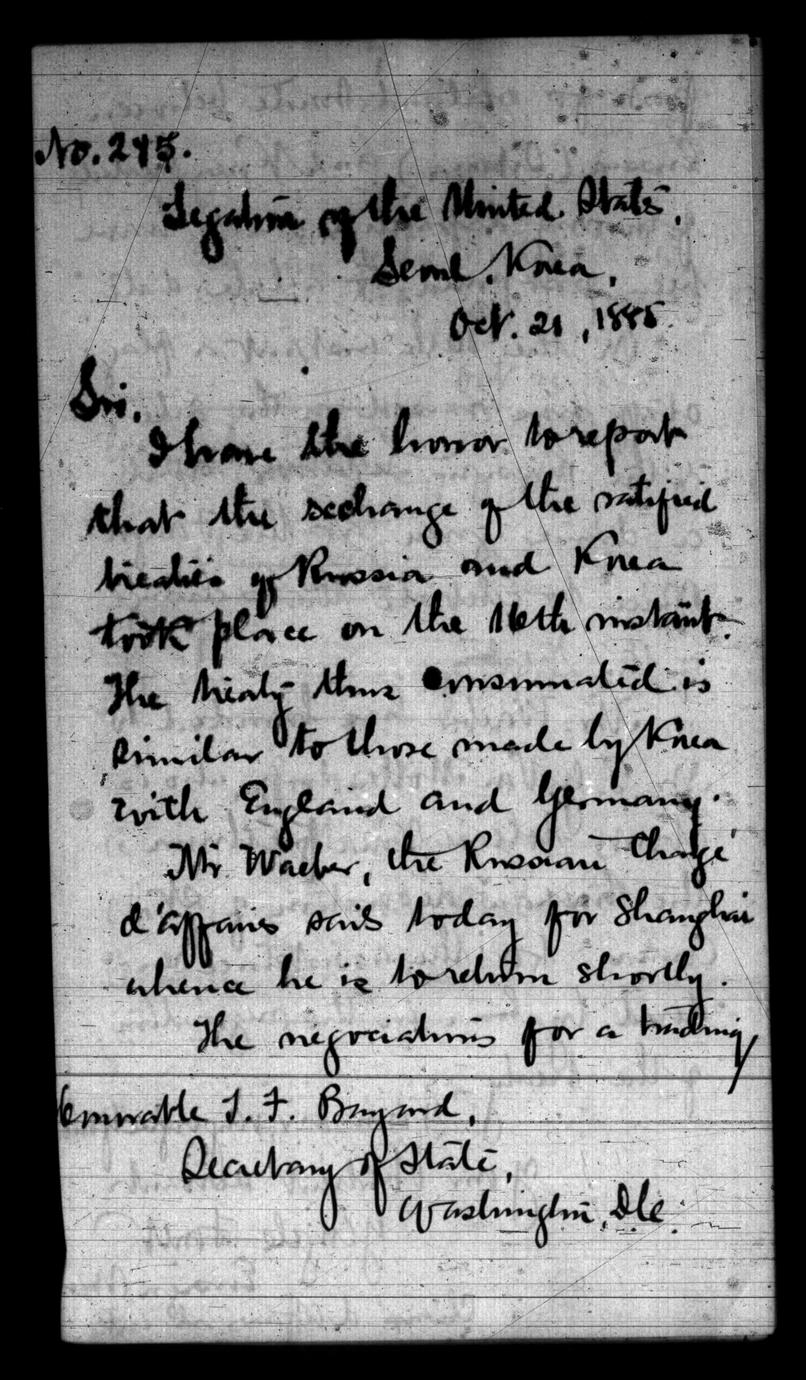 No. 245.
Legation of the United States,
Seoul, Korea,
Oct. 21, 1885.
Sir,
I have the honor to report
that the exchange of the ratified
treaties of Russia and Korea
took place on the 16th instant.
The treaty thus consummated is
similar to those made by Korea
with England and Germany.
Mr. Waeber, the Russian Chargé
d'affaires sails today for Shanghai
whence he is to return shortly.
The negociations for a trading
Honorable T. F. Bayard,
Secretary of State,
Washington, D.C.